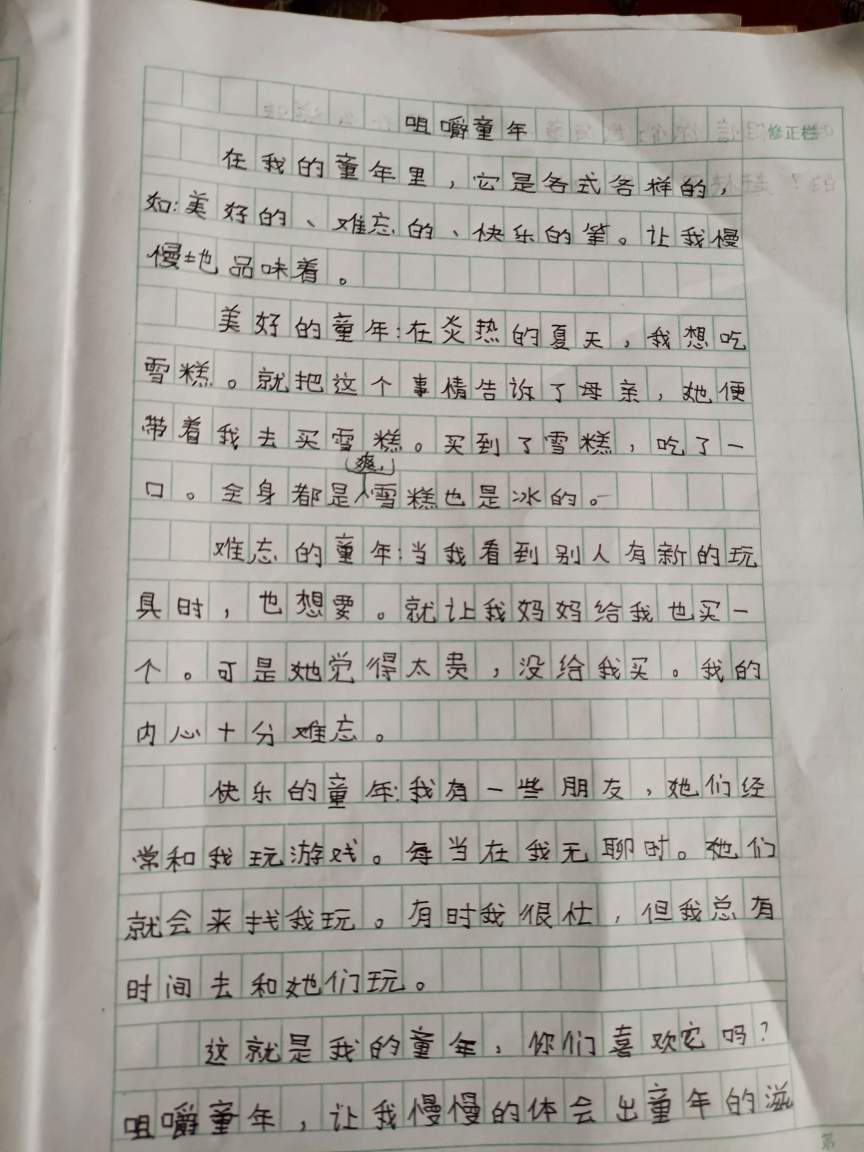 咀嚼童年
修正栏
在我的童年里，它是各式各样的，
如:美好的、难忘的、快乐的等。让我慢
慢地品味着。
美好的童年:在炎热的夏天，我想吃
雪糕。就把这个事情告诉了母亲，她便
带着我去买雪糕。买到了雪糕，吃了一
爽，
口。全身都是雪糕也是冰的。
难忘的童年:当我看到别人有新的玩
具时，也想要。就让我妈妈给我也买一
个。可是她觉得太贵，没给我买。我的
内心十分难忘。
快乐的童年:我有一些朋友，她们经
常和我玩游戏。每当在我无聊时。她们
就会来找我玩。有时我很忙，但我总有
时间去和她们玩。
这就是我的童年，你们喜欢它吗?
咀嚼童年，让我慢慢的体会出童年的滋
第